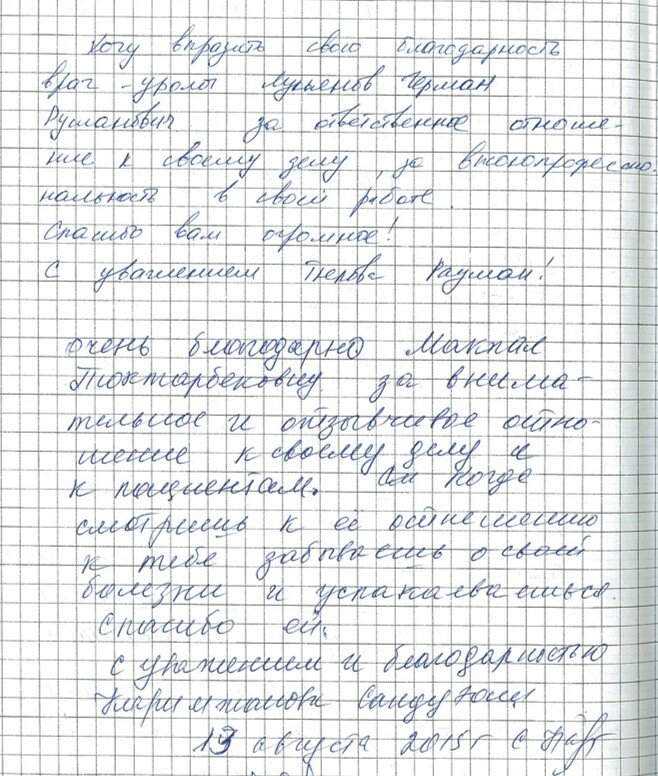 Хочу впразить свою благодарность
врач-урологу Лукьенов Герман
Русланович за ответственное отноше-
ние к своему делу, за високопрофессио
нальность в своей работе.
Спасибо вам огромное!
С уважением Рауман!
очень благодарно Макпал
Токтарбековну за внима-
тельное и отзывчивое отно-
шение к своему делу и
к пациентам. когда
смотришь к её отнешению
к тебе забываешь о своей
болезни и успакаеваешься.
Спасибо ей.
с уважением и благодарностью
Нариманова
13 августа 2015г